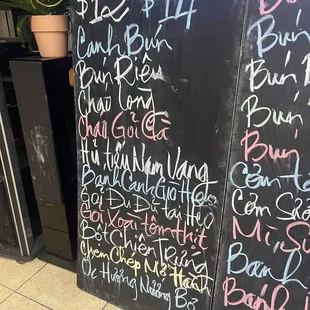 $12 $14
Canh Bún
Bún Riêu
Cháo Lòng
Cháo Gỏi Gà
Hủ tiếu Nam Vang
Bánh Canh Giò Heo
Gỏi Đu Đủ tai Heo
Gỏi Xoài Tôm thịt
Bột Chiên Trứng
Chem Chép Mỡ Hành
Ốc Hương Nướng Bơ
Bún
Bún
Bún
Bún
Cơm
Cơm Sườ
Mì, Sú
Bánh
Bánh